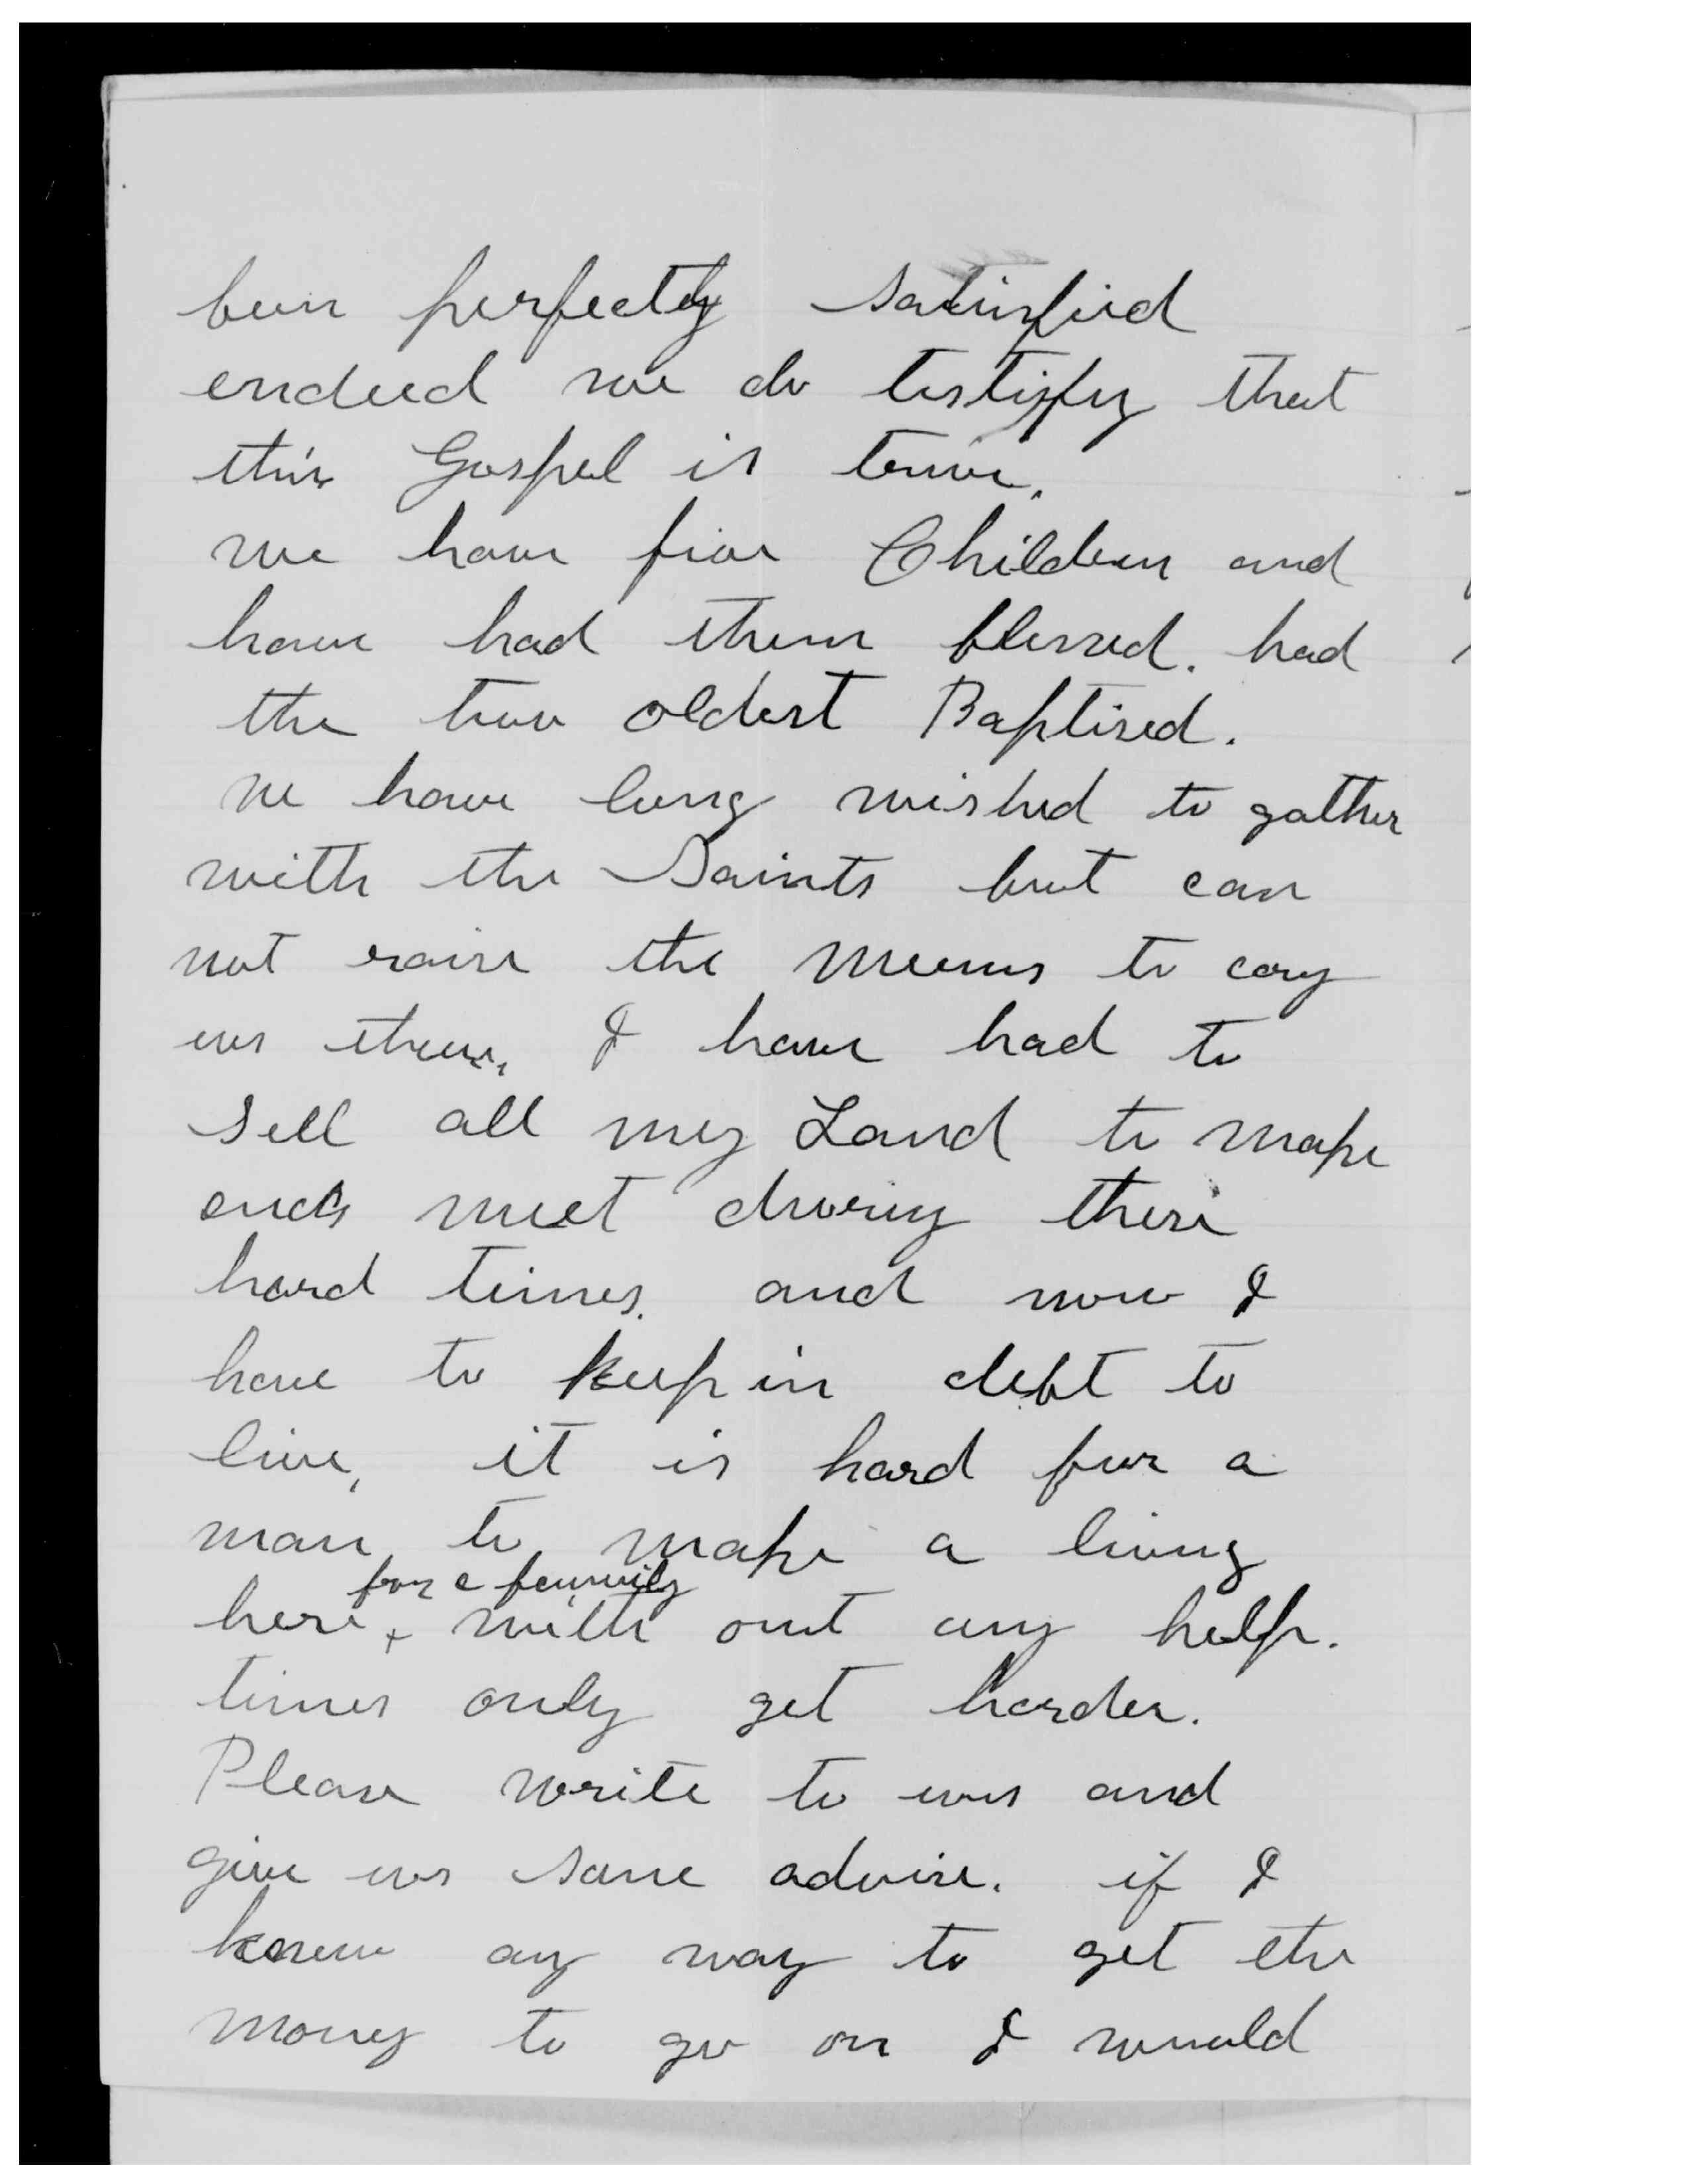 been perfectly satisfied
endeed we do testiffy that
this Gospel is true.
we have five Children and
have had them blessed. had
the two oldest Baptised.
we have long wished to gather
with the Saints but can
not raise the means to cary
us there, I have had to
sell all my Land to make
ends meet during these
hard times. and now I
have to keep in debt to
live, it is hard for a
man to make a living
for a family
here, + with out any help.
times only get harder.
Please write to us and
give us some advise. if I
knew any way to get the
money to go on I would